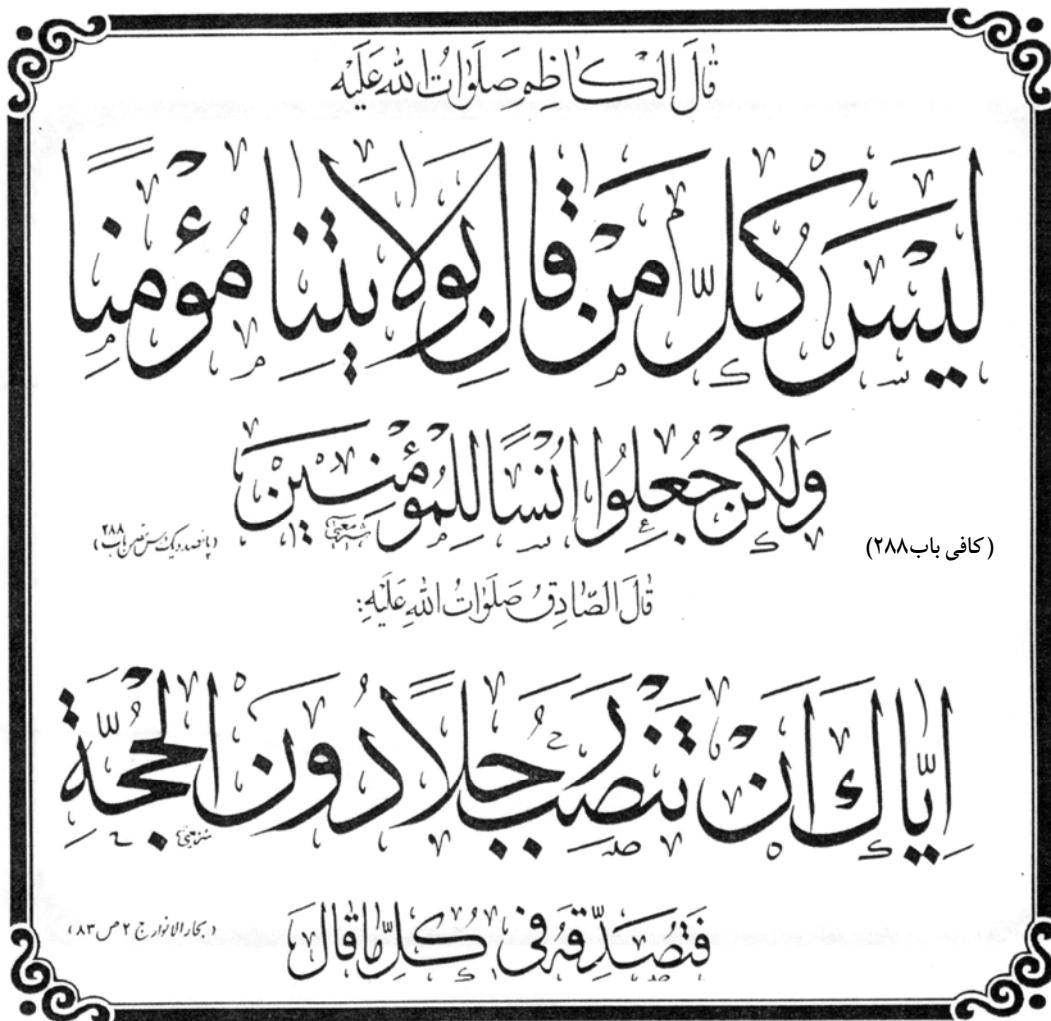 قٰالَ الکٰاظم صَلَوٰاتُ اللهِ عَلَیْه
لَیْسَ کُلُّ مَنْ قٰالَ بِوِلاٰیَتِنٰا مُؤْمِنًا
وَلٰکِنْ جُعِلُوا اُنْسًا لِلْمُؤْمِنینَ
(کافی باب۲۸۸)
قٰالَ الصّٰادِقُ صَلَوٰاتُ اللهِ عَلَیْهِ:
اِیّٰاكَ اَنْ تَنْصِبَ رَجُلاً دُونَ الْحُجَّةِ
فَتُصَدِّقَهُ فی کُلِّ مٰا قٰالَ
(بحارالانوار ج ۲ ص ۸۳)